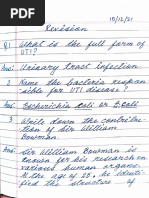 15/12/21
Revision
Q1 What is the full form of
UTI?
Ans: Urinary tract infection.
2 Name the bacteria respon
sible for UTI disease?
Ans: Escherichia Coli or E.Coli
3 Write down the contribu-
tion of Sir William
Bowman.
Ans: Sir William Bowman is
known for his research on
rational human organs.
At the age of 25, he identi-
fied the structure of